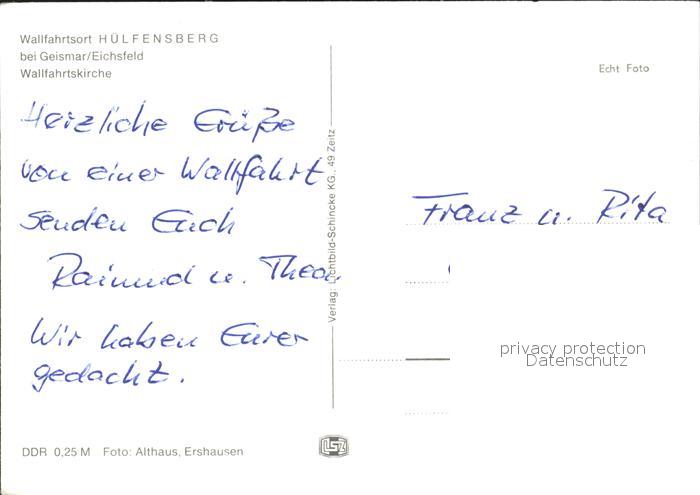 Wallfahrtsort HÜLFENSBERG
bei Geismar/Eichsfeld
Wallfahrtskirche
Echt Foto
Herzliche Grüße
von einer Wallfahrt
senden Euch
Raimund u. Thea.
Wir haben Eurer
gedacht.
Verlag: Lichtbild-Schincke KG., 49 Zeitz
Franz u. Rita
privacy protection
Datenschutz
DDR 0,25 M Foto: Althaus, Ershausen
LSZ